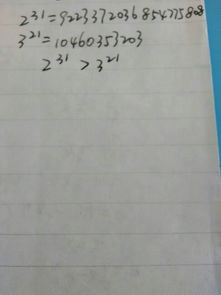 2³¹=9223372036854775808
3²¹=10460353203
2³¹>3²¹